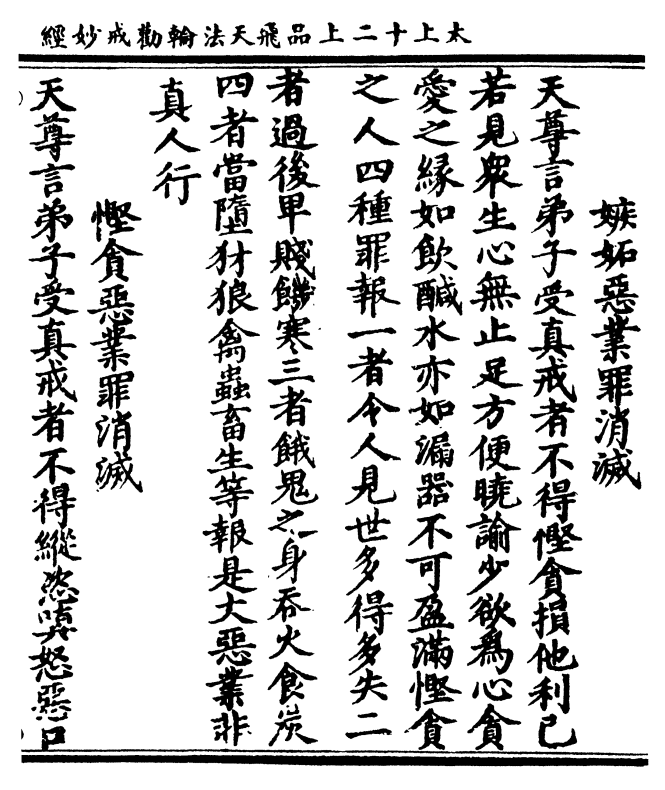 太上十二上品飛天法輪勸戒妙經
嫉妬惡業罪消滅
天尊言弟子受真戒者不得慳貪損他利己
若見衆生心無止足方便曉諭少欲爲心貪
愛之緣如飲醎水亦如漏器不可盈滿慳貪
之人四種罪報一者令人見世多得多失二
者過後卑賤饑寒三者餓鬼之身吞火食炭
四者當墮犲狼禽蟲畜生等報是大惡業非
真人行
慳貪惡業罪消滅
天尊言弟子受真戒者不得縱恣嗔怒惡口